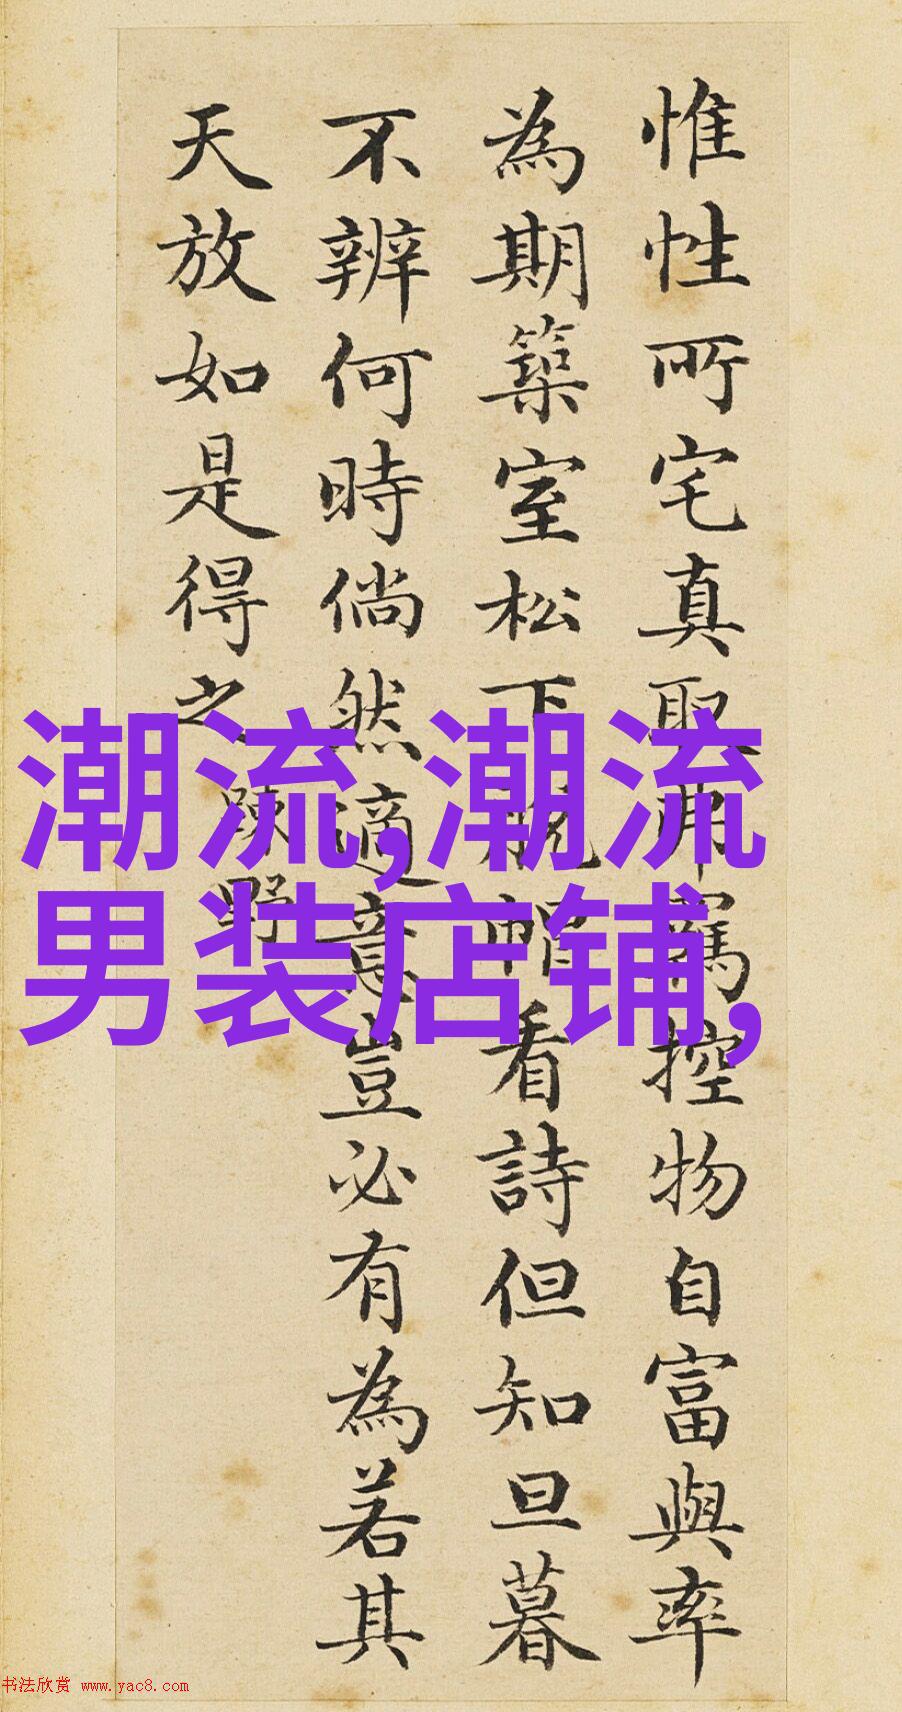 惟性所宅真取弗羈控物自富與率
為期築室松下脫帽看詩但知旦暮
不辨何時倘然適意豈必有為若其
天放如是得之
踈野
潮流,潮流
男装店铺,
书法欣赏 www.yac8.com